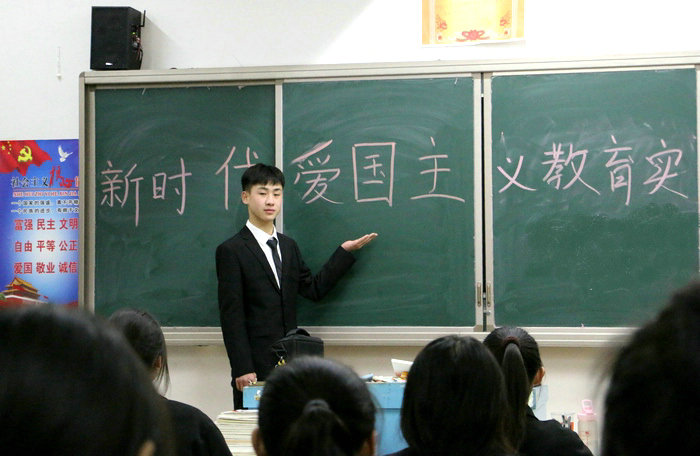 新时代爱国主义教育实
社会主义核心
富强 民主 文明
自由 平等 公正
爱国 敬业 诚信